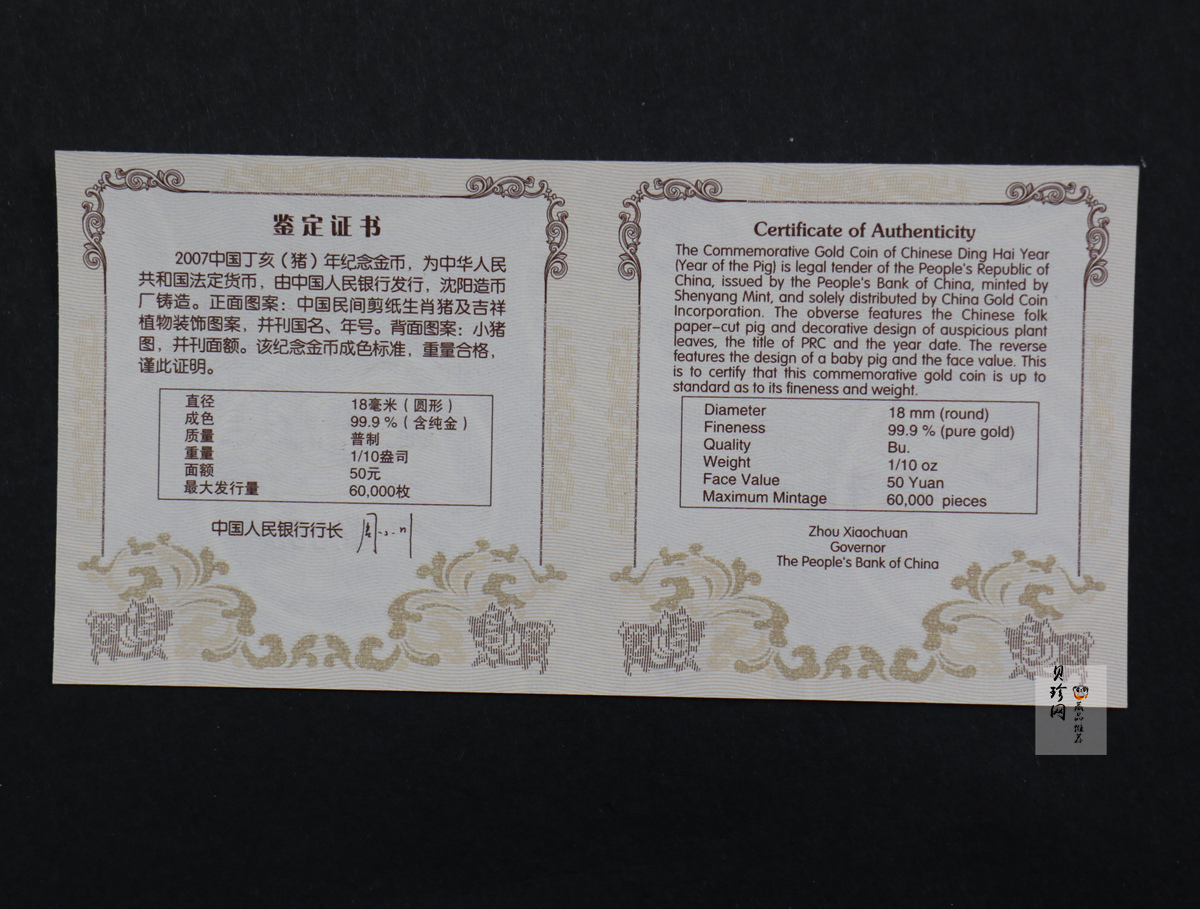 鉴定证书
2007中国丁亥（猪）年纪念金币，为中华人民
共和国法定货币，由中国人民银行发行，沈阳造币
厂铸造。正面图案：中国民间剪纸生肖猪及吉祥
植物装饰图案，并刊国名、年号。背面图案：小猪
图，并刊面额。该纪念金币成色标准，重量合格，
谨此证明。
直径 18毫米（圆形）
成色 99.9 %（含纯金）
质量 普制
重量 1/10盎司
面额 50元
最大发行量 60,000枚
中国人民银行行长 周小川
Certificate of Authenticity
The Commemorative Gold Coin of Chinese Ding Hai Year
(Year of the Pig) is legal tender of the People's Republic of
China, issued by the People's Bank of China, minted by
Shenyang Mint, and solely distributed by China Gold Coin
Incorporation. The obverse features the Chinese folk
paper-cut pig and decorative design of auspicious plant
leaves, the title of PRC and the year date. The reverse
features the design of a baby pig and the face value. This
is to certify that this commemorative gold coin is up to
standard as to its fineness and weight.
Diameter 18 mm (round)
Fineness 99.9 % (pure gold)
Quality Bu.
Weight 1/10 oz
Face Value 50 Yuan
Maximum Mintage 60,000 pieces
Zhou Xiaochuan
Governor
The People's Bank of China
贝珍网
藏品推荐